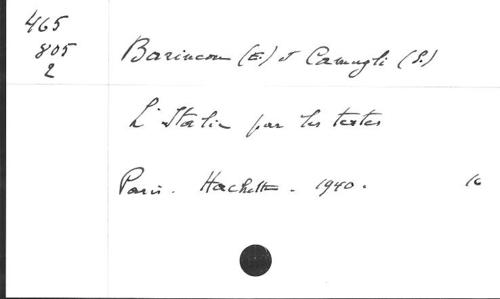 465
805
2
Barincou (E.) et Camugli (S.)
L'Italie par les textes
Paris. Hachette. 1940. 16